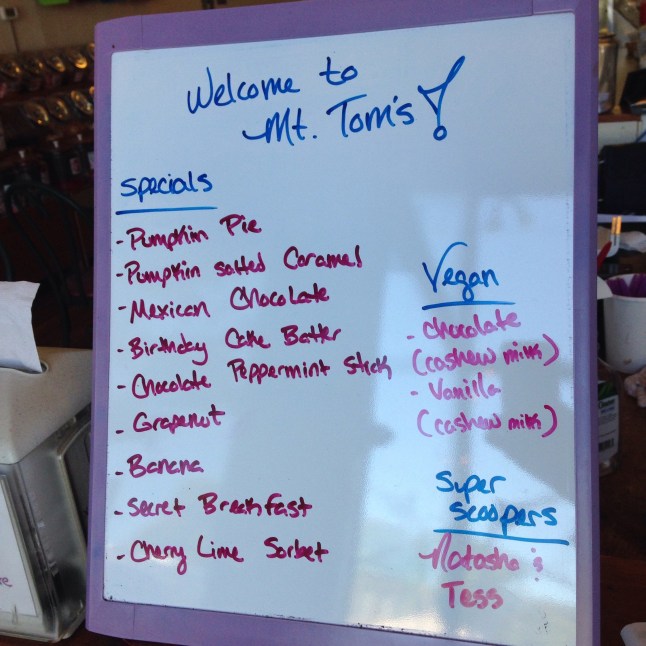 Welcome to
Mt. Tom's!
Specials
- Pumpkin Pie
- Pumpkin salted Caramel
- Mexican Chocolate
- Birthday Cake Batter
- Chocolate Peppermint Stick
- Grapenut
- Banana
- Secret Breakfast
- Cherry Lime Sorbet
Vegan
- chocolate
(cashew milk)
- Vanilla
(cashew milk)
Super
Scoopers
Natasha &
Tess